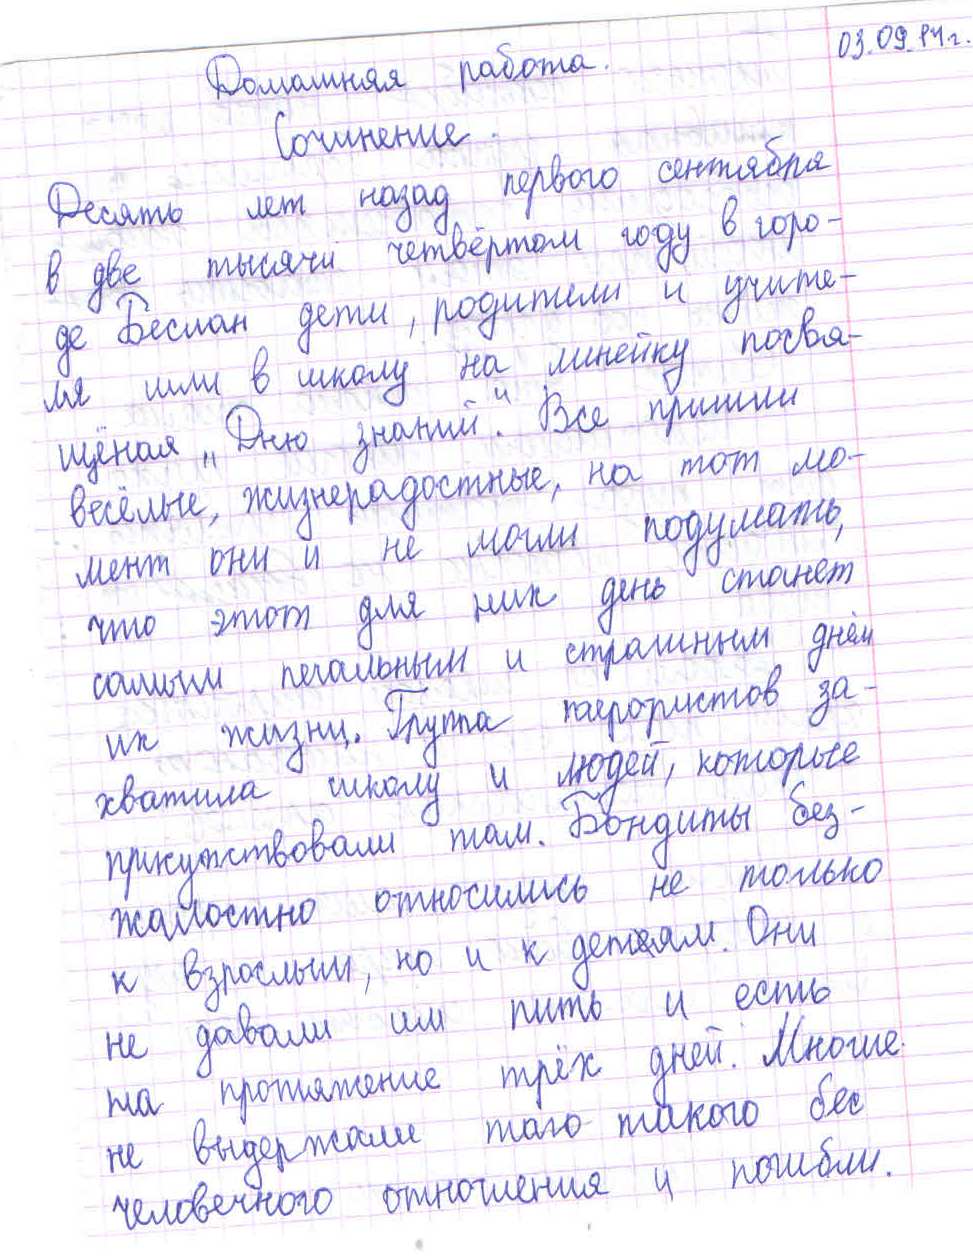 03.09.14г.
Домашняя работа.
Сочинение.
Десять лет назад первого сентября
в две тысячи четвёртом году в горо-
де Беслан дети, родители и учите-
ля шли в школу на линейку посвя-
щёная „Дню знаний“. Все пришли
весёлые, жизнерадостные, на тот мо-
мент они и не могли подумать,
что этот для них день станет
самым печальным и страшным днём
их жизни. Группа терористов за-
хватила школу и людей, которые
присутствовали там. Бандиты без-
жалостно относились не только
к взрослым, но и к детям. Они
не давали им пить и есть
на протяжение трёх дней. Многие
не выдержали того такого бес
человечного отношения и погибли.